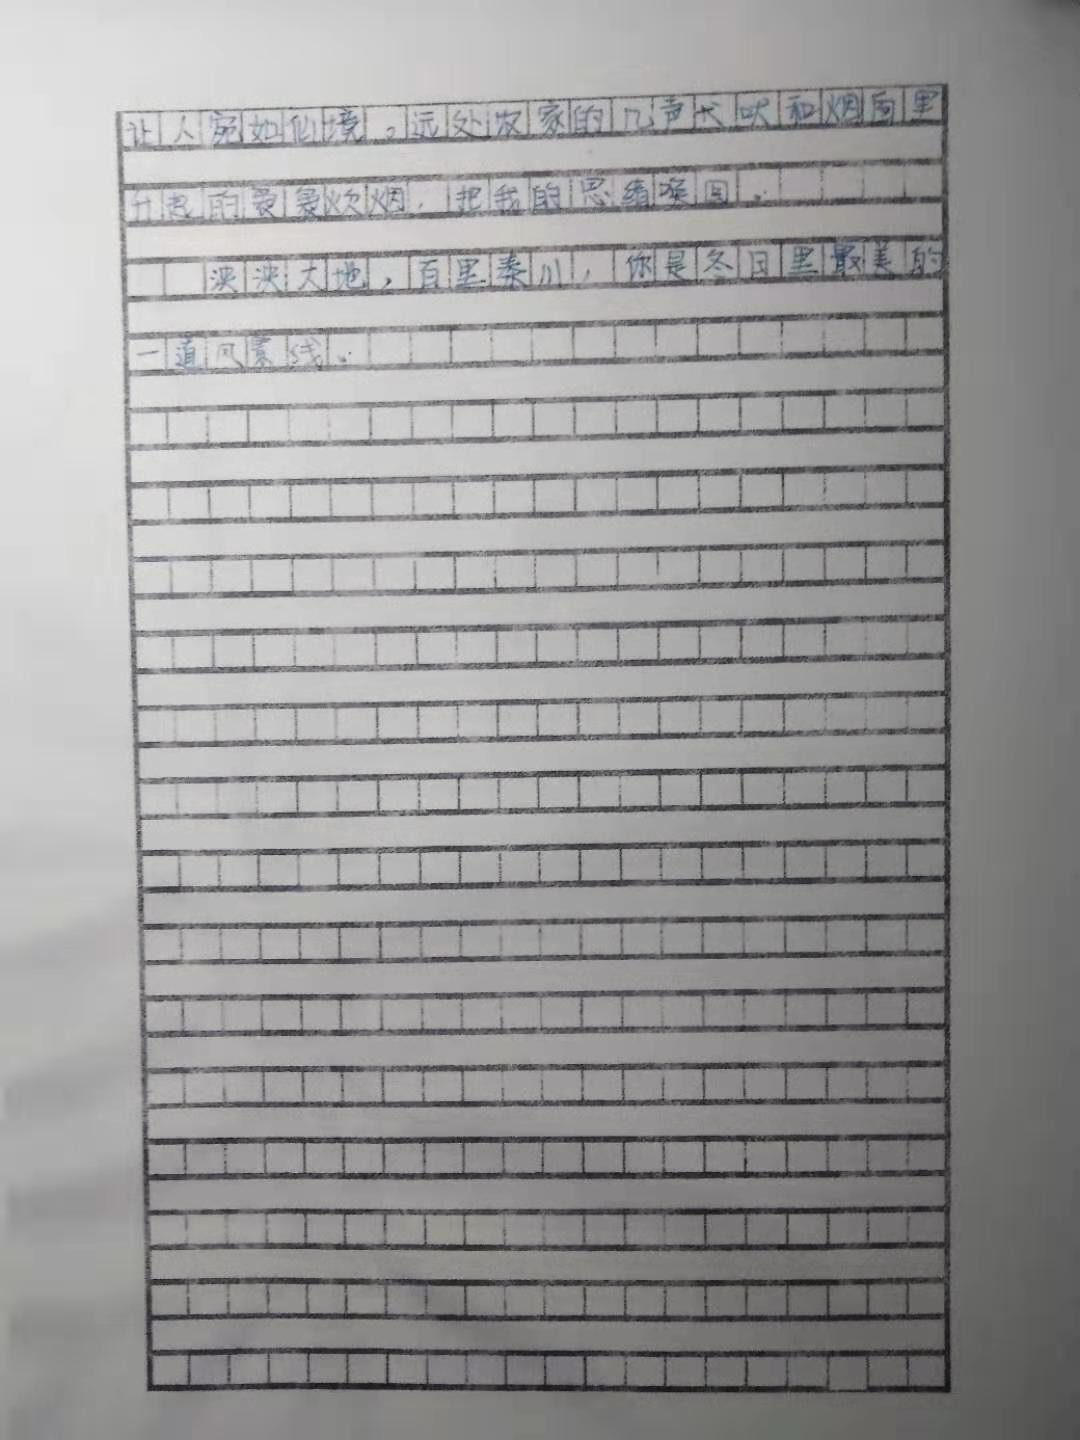 让人宛如仙境。远处农家的几声犬吠和烟囱里
升起的袅袅炊烟，把我的思绪唤回。
泱泱大地，百里秦川，你是冬日里最美的
一道风景线。